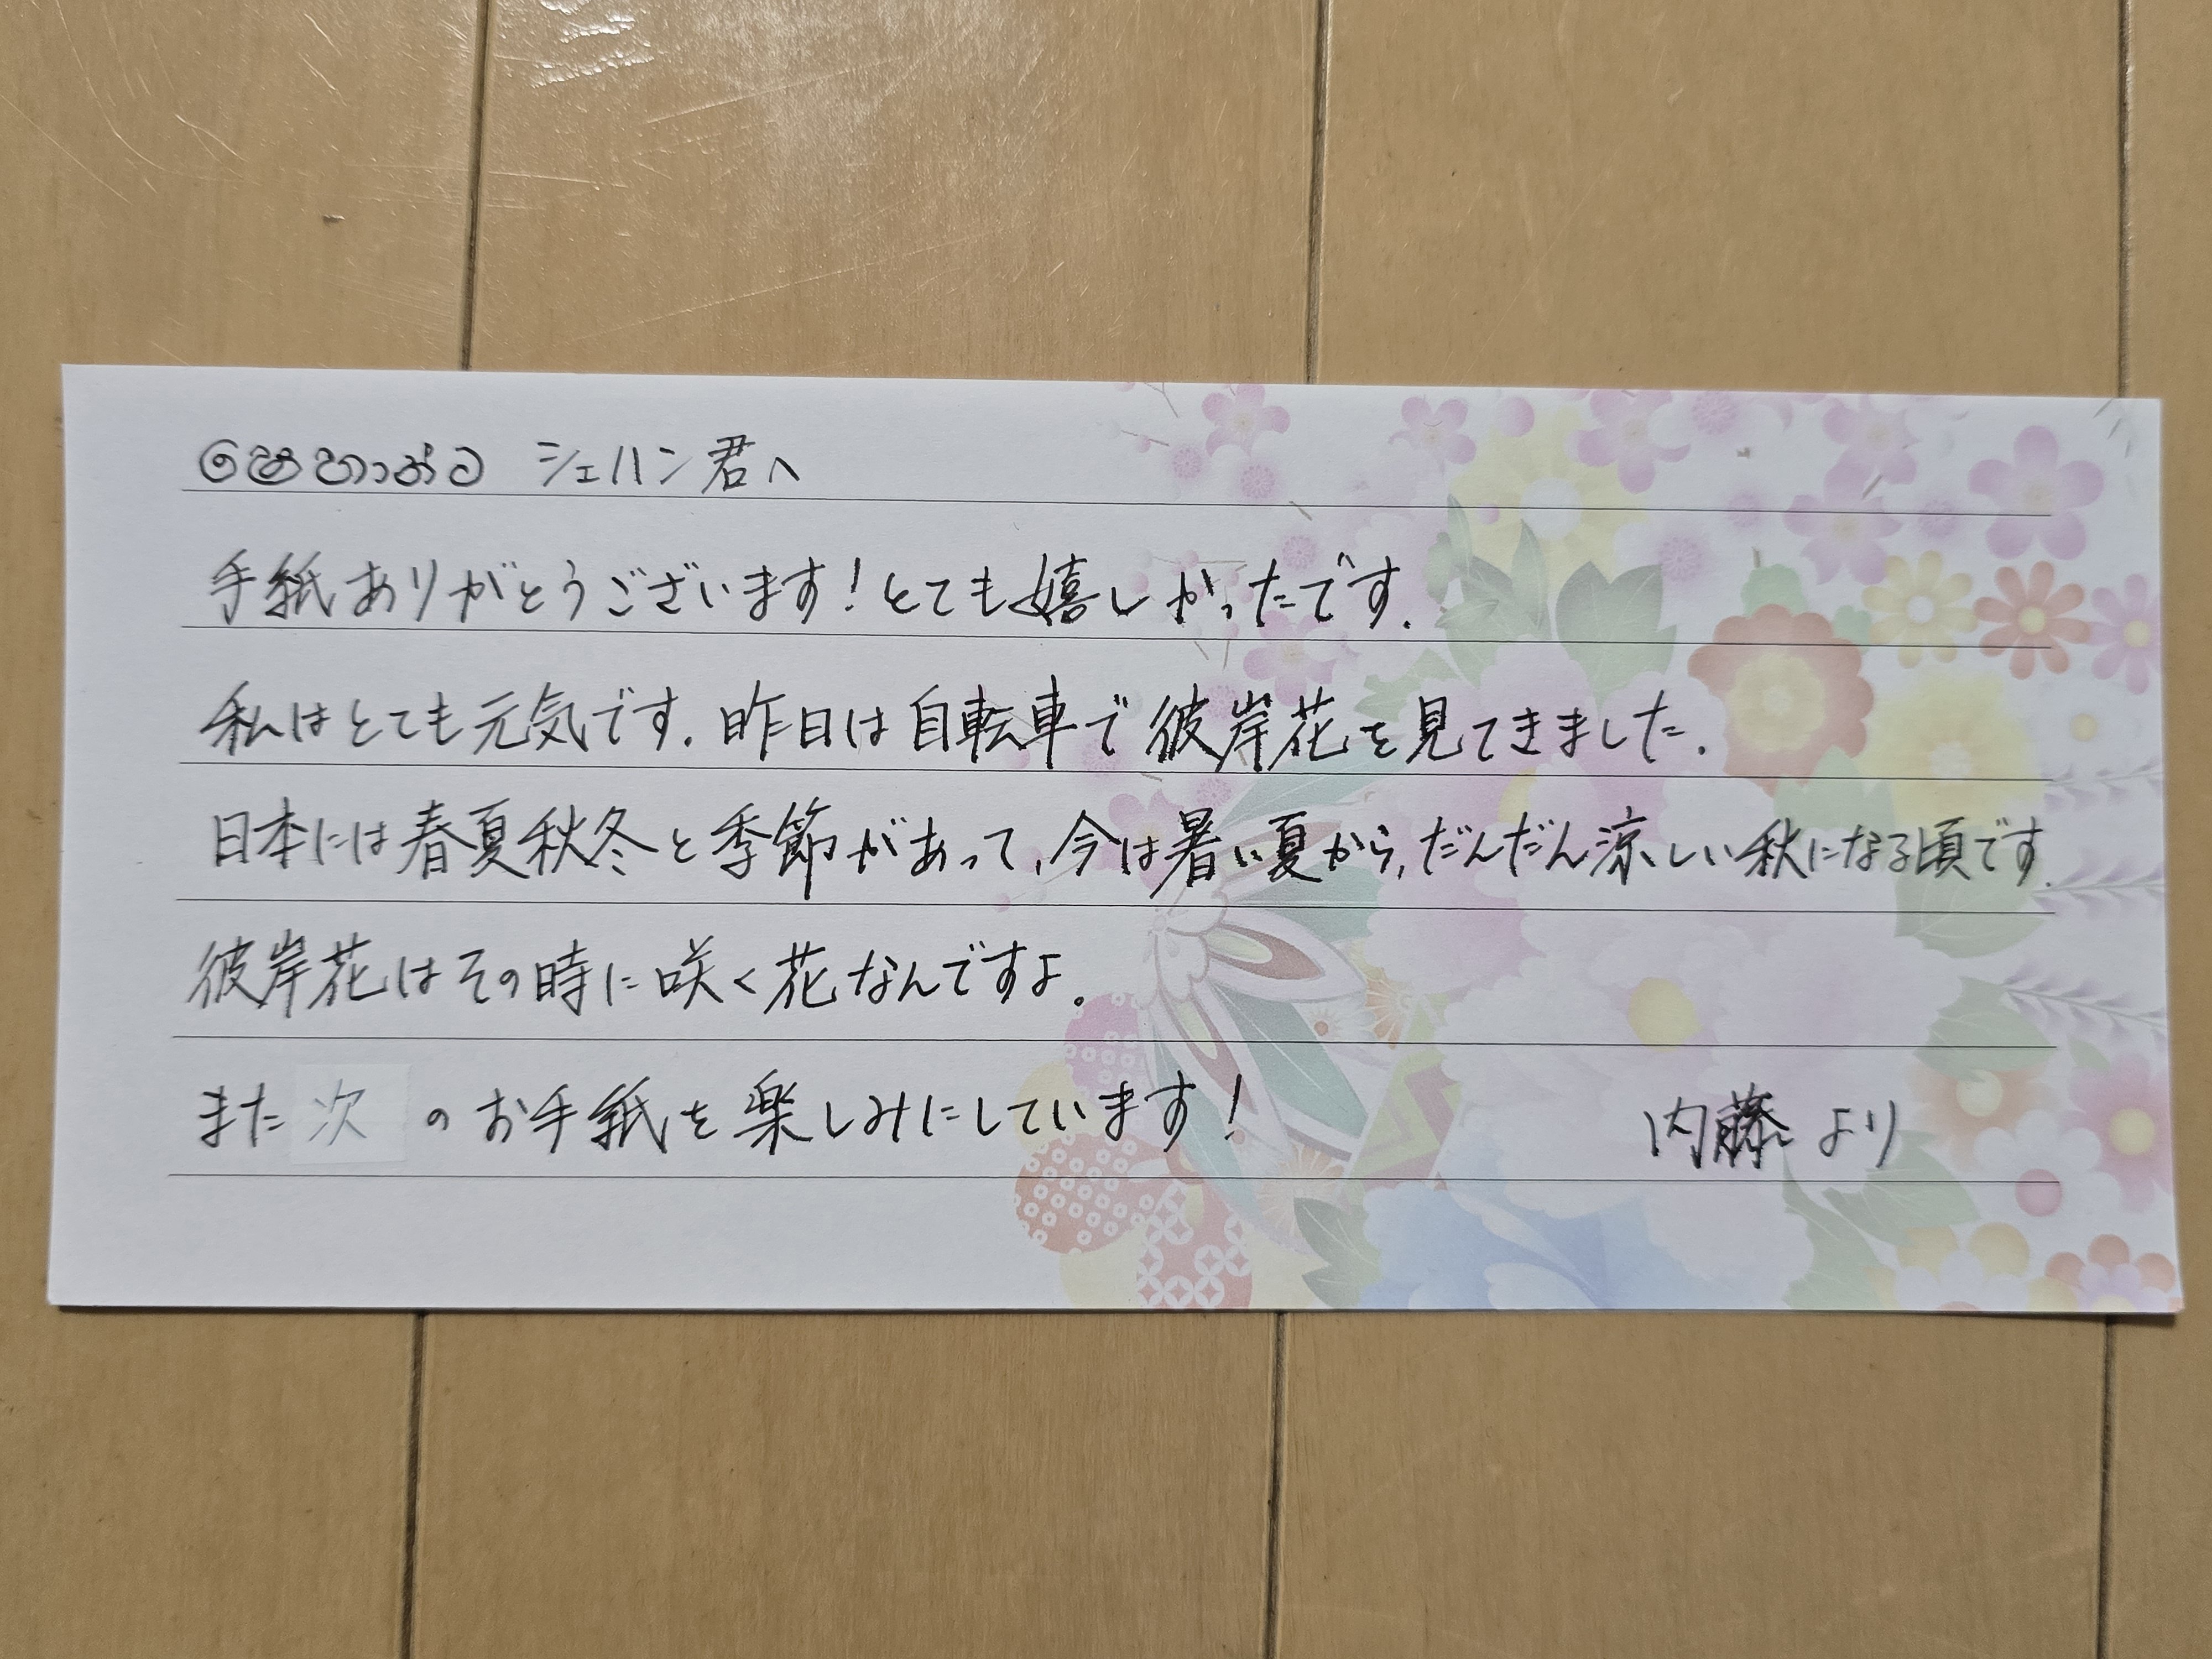 シェハン君へ
手紙ありがとうございます！とても嬉しかったです.
私はとても元気です.昨日は自転車で彼岸花を見てきました.
日本には春夏秋冬と季節があって、今は暑い夏から、だんだん涼しい秋になる頃です.
彼岸花はその時に咲く花なんですよ。
また次のお手紙を楽しみにしています！ 内藤より